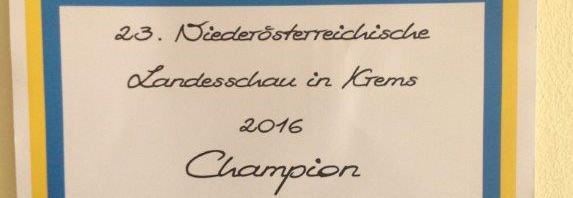 23. Niederösterreichische
Landesschau in Krems
2016
Champion